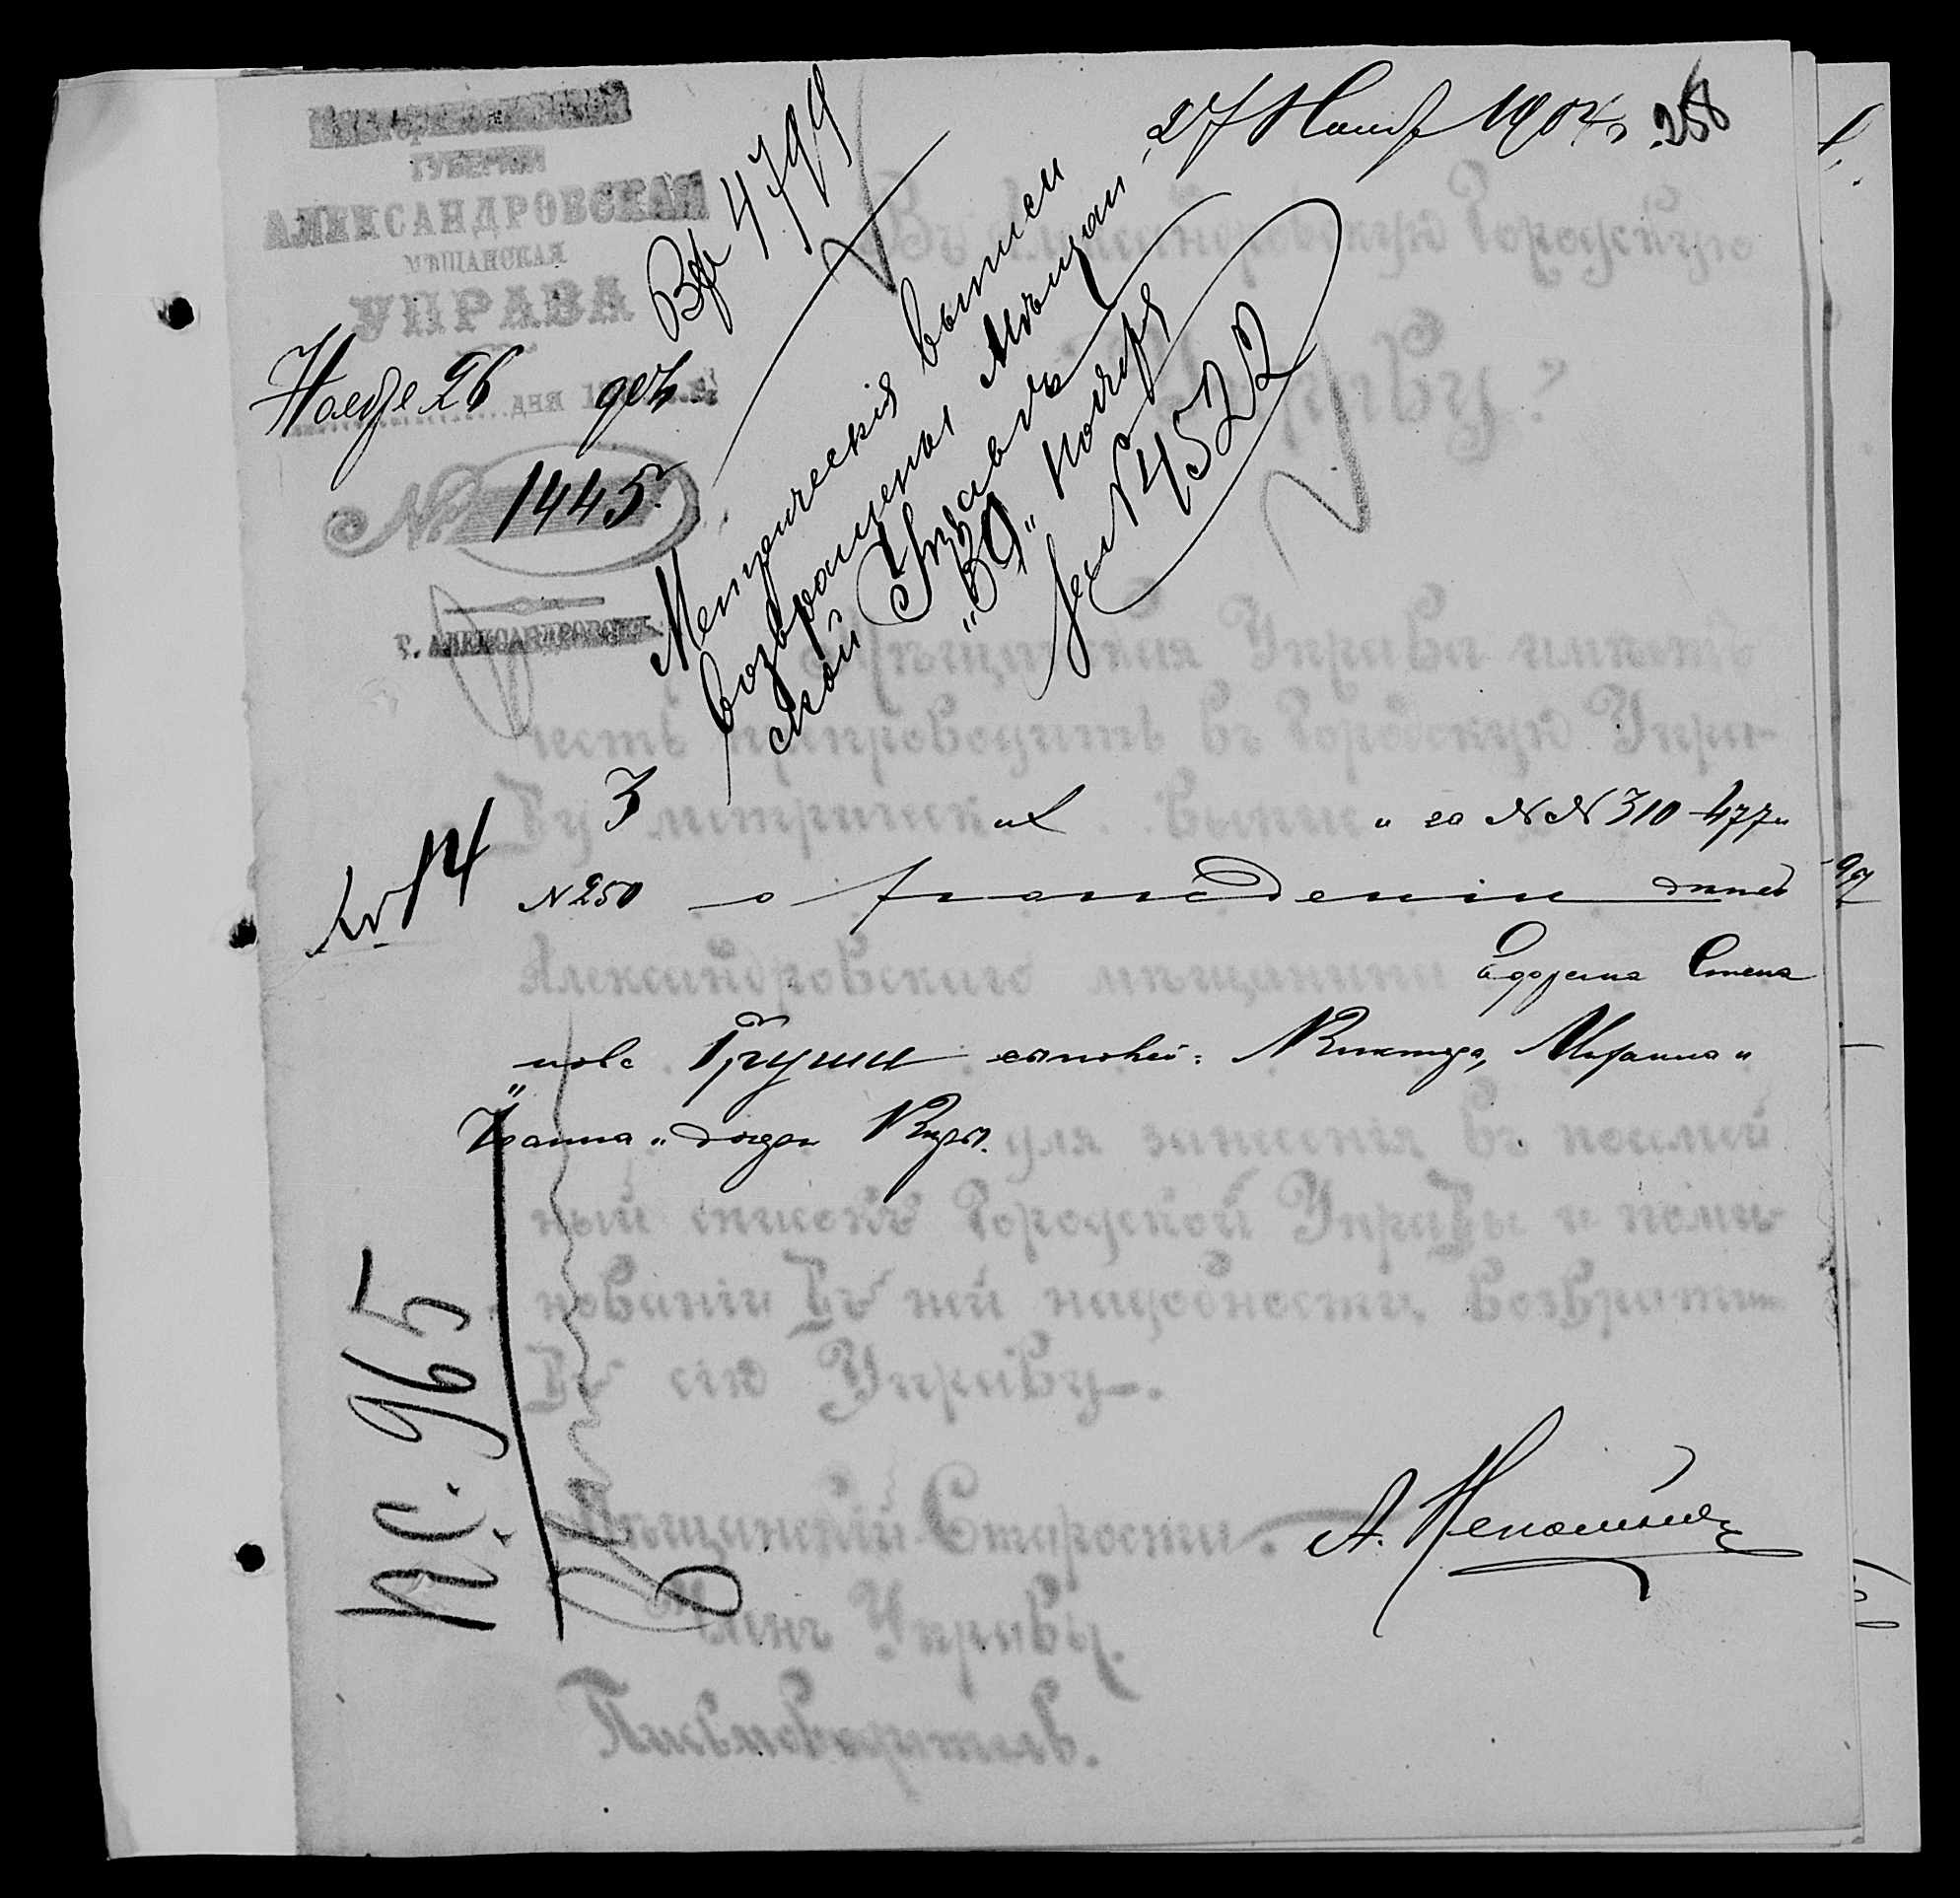 27 Ноябр 1904 г. 258
Екатеринославской
ГУБЕРНІИ
АЛЕКСАНДРОВСКАЯ
МѢЩАНСКАЯ
УПРАВА
Ноября 26 дня 1904 г.
№ 1445
Г. АЛЕКСАНДРОВСКЪ.
Вх 4799
Метрическія выписи
возвращены Мѣщан
ской Управѣ
„30" ноября
№ 4522
Въ Александровскую Городскую
Управу.
Мѣщанская Управа имѣетъ
честь препроводить въ Городскую Упра-
ву 3 метрическихъ выписи за №№ 310-477 и
№ 250 о рожденіи дѣтей
Александровскаго мѣщанина Ефрема Степа
нова Груши сыновей: Виктора, Михаила и
Іоанна и дочери Вѣры. для занесенія въ посемей
ный списокъ Городской Управы и по ми-
нованіи въ ней надобности, возвратить
въ сію Управу.
№ 14
п.с. 965
Мѣщанскій Староста.
Членъ Управы.
Письмоводитель.